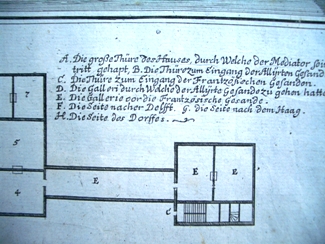 A. Die große Thüre des Hauses, durch Welche der Mediator sein
tritt gehapt, B. Die Thüre zum Eingang der Allyrten Gesand
C. Die Thüre zum Eingang der Frantzösischen Gesanden.
D. Die Galleri durch Welche der Allyrte Gesande zu gehen hatte
E. Die Gallerie vor die Frantzösische Gesande.
F. Die Seite nacher Delfft G. die Seite nach dem Haag.
H. Die Seite des Dorffes.
7
5
E
E
E
4
C